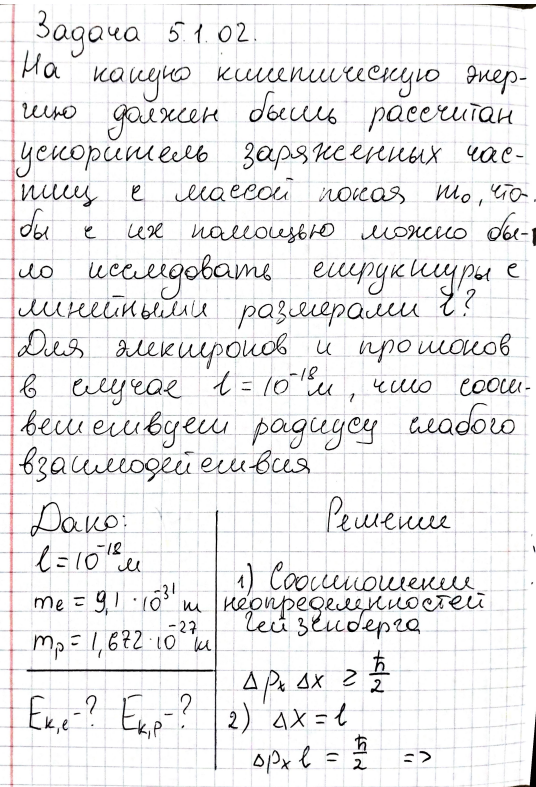 Задача 5.1.02.
На какую кинетическую энер-
гию должен быть рассчитан
ускоритель заряженных час-
тиц с массой покоя m₀, что-
бы с их помощью можно бы-
ло исследовать структуры с
линейными размерами l?
Для электронов и протонов
в случае l = 10⁻¹⁸м, что соот-
ветствует радиусу слабого
взаимодействия
Дано:
l = 10⁻¹⁸м
me = 9,1 · 10⁻³¹ кг
mp = 1,672 · 10⁻²⁷ кг
Eк,e - ? Eк,p - ?
Решение
1) Соотношении
неопределенностей
Гейзенберга
Δpₓ Δx ≥ ħ/2
2) Δx = l
Δpₓ l = ħ/2 =>